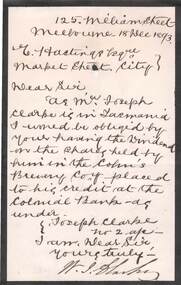 125 William Street
Melbourne 18 Dec 1893
E. Hastings Esqre
Market Street, City
Dear Sir
As Mr Joseph
Clarke is in Tasmania
I will be obliged by
your having the Dividend
on the shares held by
him in the Cohn's
Brewery Coy placed
to his credit at the
Colonial Bank as
under.
Joseph Clarke
no 2 a/c
I am, Dear Sir
yours truly